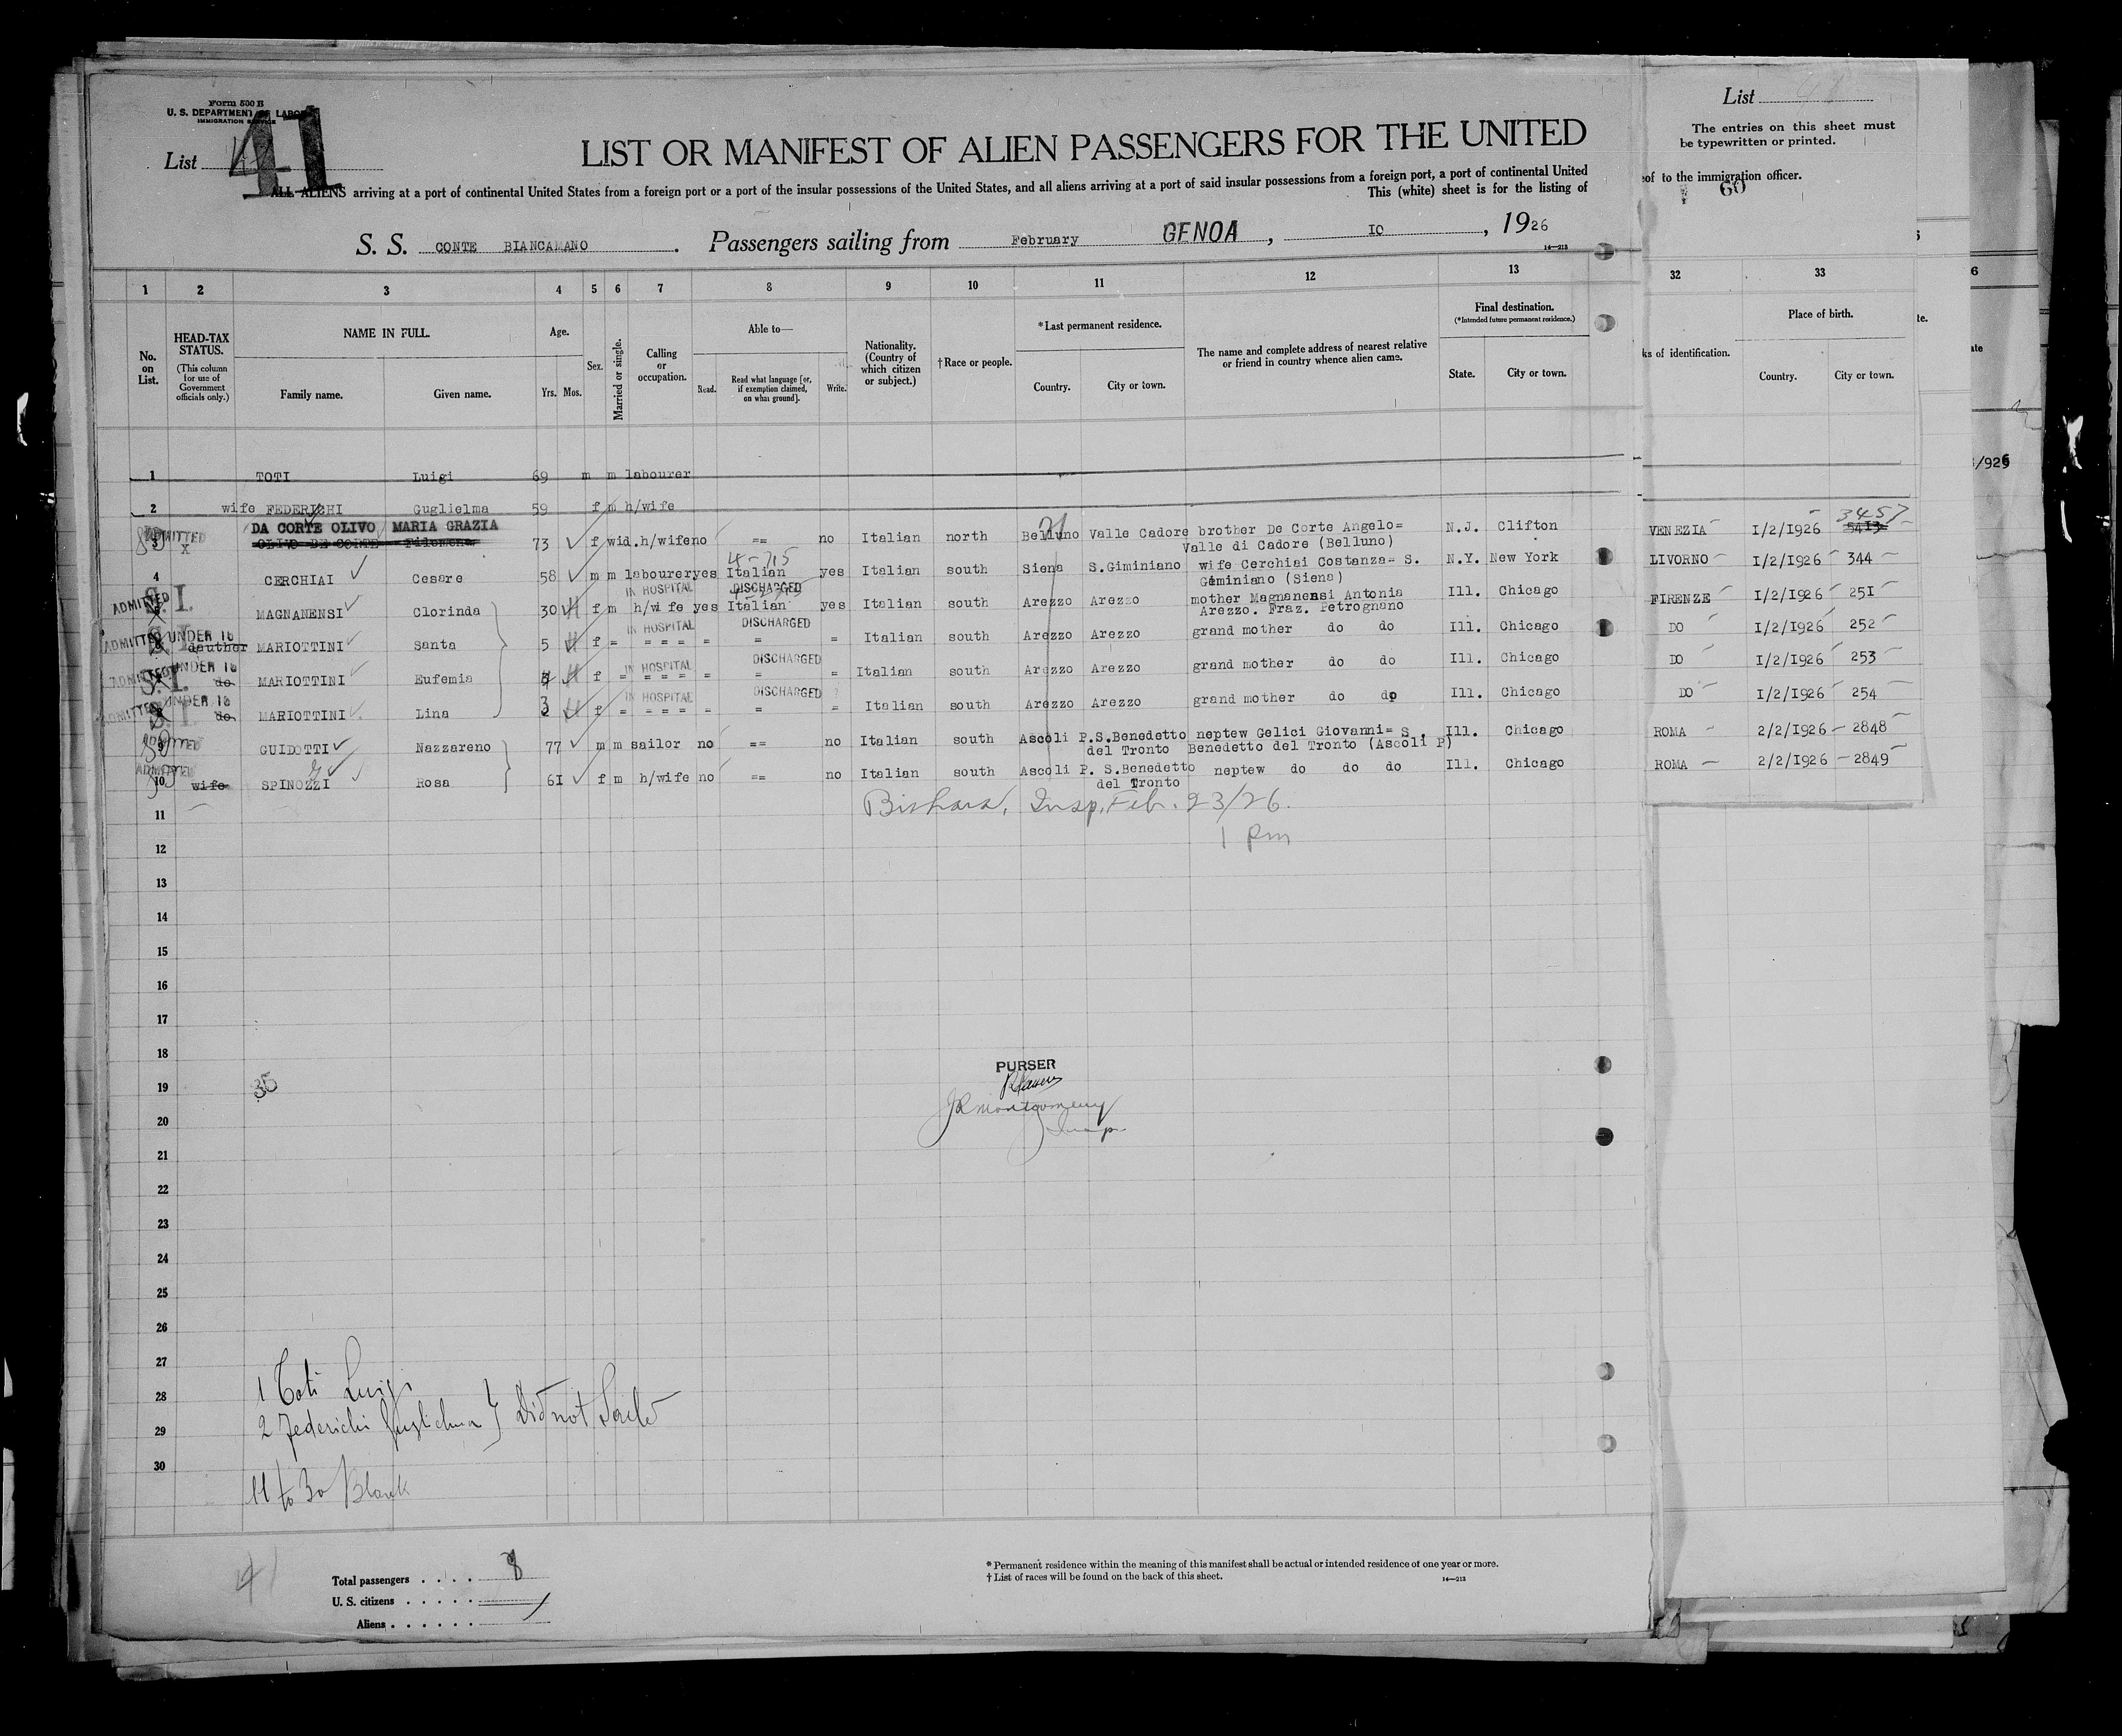 Form 500 B
U. S. DEPARTMENT OF LABOR
IMMIGRATION SERVICE
List 41
LIST OR MANIFEST OF ALIEN PASSENGERS FOR THE UNITED
ALL ALIENS arriving at a port of continental United States from a foreign port or a port of the insular possessions of the United States, and all aliens arriving at a port of said insular possessions from a foreign port, a port of continental United
This (white) sheet is for the listing of
S. S. CONTE BIANCAMANO . Passengers sailing from February GENOA , IO , 1926
14—213
List
The entries on this sheet must
be typewritten or printed.
eof to the immigration officer.
60
1 2 3 4 5 6 7 8 9 10 11 12 13 32 33
No. on List.
HEAD-TAX STATUS.
(This column for use of Government officials only.)
NAME IN FULL.
Family name. Given name.
Age.
Yrs. Mos.
Sex.
Married or single.
Calling or occupation.
Able to—
Read. Read what language [or, if exemption claimed, on what ground]. Write.
Nationality. (Country of which citizen or subject.)
†Race or people.
*Last permanent residence.
Country. City or town.
The name and complete address of nearest relative or friend in country whence alien came.
Final destination.
(*Intended future permanent residence.)
State. City or town.
ks of identification.
Place of birth.
Country. City or town.
1 TOTI Luigi 69 m m labourer
2 wife FEDERICHI Guglielma 59 f m h/wife
DA CORTE OLIVO MARIA GRAZIA
ADMITTED 3 x OLIVO DE CORTE Filomena 73 f wid. h/wife no == no Italian north Belluno Valle Cadore brother De Corte Angelo= N.J. Clifton VENEZIA 1/2/1926 5413 3457
Valle di Cadore (Belluno)
4 CERCHIAI Cesare 58 m m labourer yes Italian yes Italian south Siena S.Giminiano wife Cerchiai Costanza- S. N.Y. New York LIVORNO 1/2/1926 344
Giminiano (Siena)
IN HOSPITAL DISCHARGED
ADMITTED S.I. MAGNANENSI Clorinda 30 f m h/wife yes Italian yes Italian south Arezzo Arezzo mother Magnanensi Antonia Ill. Chicago FIRENZE 1/2/1926 251
Arezzo. Fraz. Petrognano
IN HOSPITAL DISCHARGED
ADMITTED UNDER 16 S.I. dauther MARIOTTINI Santa 5 f = = = = = = = Italian south Arezzo Arezzo grand mother do do Ill. Chicago DO 1/2/1926 252
IN HOSPITAL DISCHARGED
ADMITTED UNDER 16 S.I. do MARIOTTINI Eufemia 4 f = = = = = = = Italian south Arezzo Arezzo grand mother do do Ill. Chicago DO 1/2/1926 253
IN HOSPITAL DISCHARGED
ADMITTED UNDER 16 S.I. do MARIOTTINI Lina 3 f = = = = = = = Italian south Arezzo Arezzo grand mother do do Ill. Chicago DO 1/2/1926 254
9 GUIDOTTI Nazzareno 77 m m sailor no == no Italian south Ascoli P.S.Benedetto neptew Gelici Giovanni= S. Ill. Chicago ROMA 2/2/1926 2848
del Tronto Benedetto del Tronto (Ascoli P)
ADMITTED 10 wife SPINOZZI Rosa 61 f m h/wife no == no Italian south Ascoli P. S.Benedetto neptew do do do Ill. Chicago ROMA 2/2/1926 2849
del Tronto
11 Insp. Feb. 23/26.
12 1 pm
13
14
15
16
17
18
PURSER
19 35
20 JR Montgomery
Insp
21
22
23
24
25
26
27
28 1 Toti Luigi
29 2 Federichi Guglielma } Did not Sail
30
11 to 30 Blank
41
Total passengers . . . . 8
U. S. citizens . . . . .
Aliens . . . . . .
* Permanent residence within the meaning of this manifest shall be actual or intended residence of one year or more.
† List of races will be found on the back of this sheet. 14—213